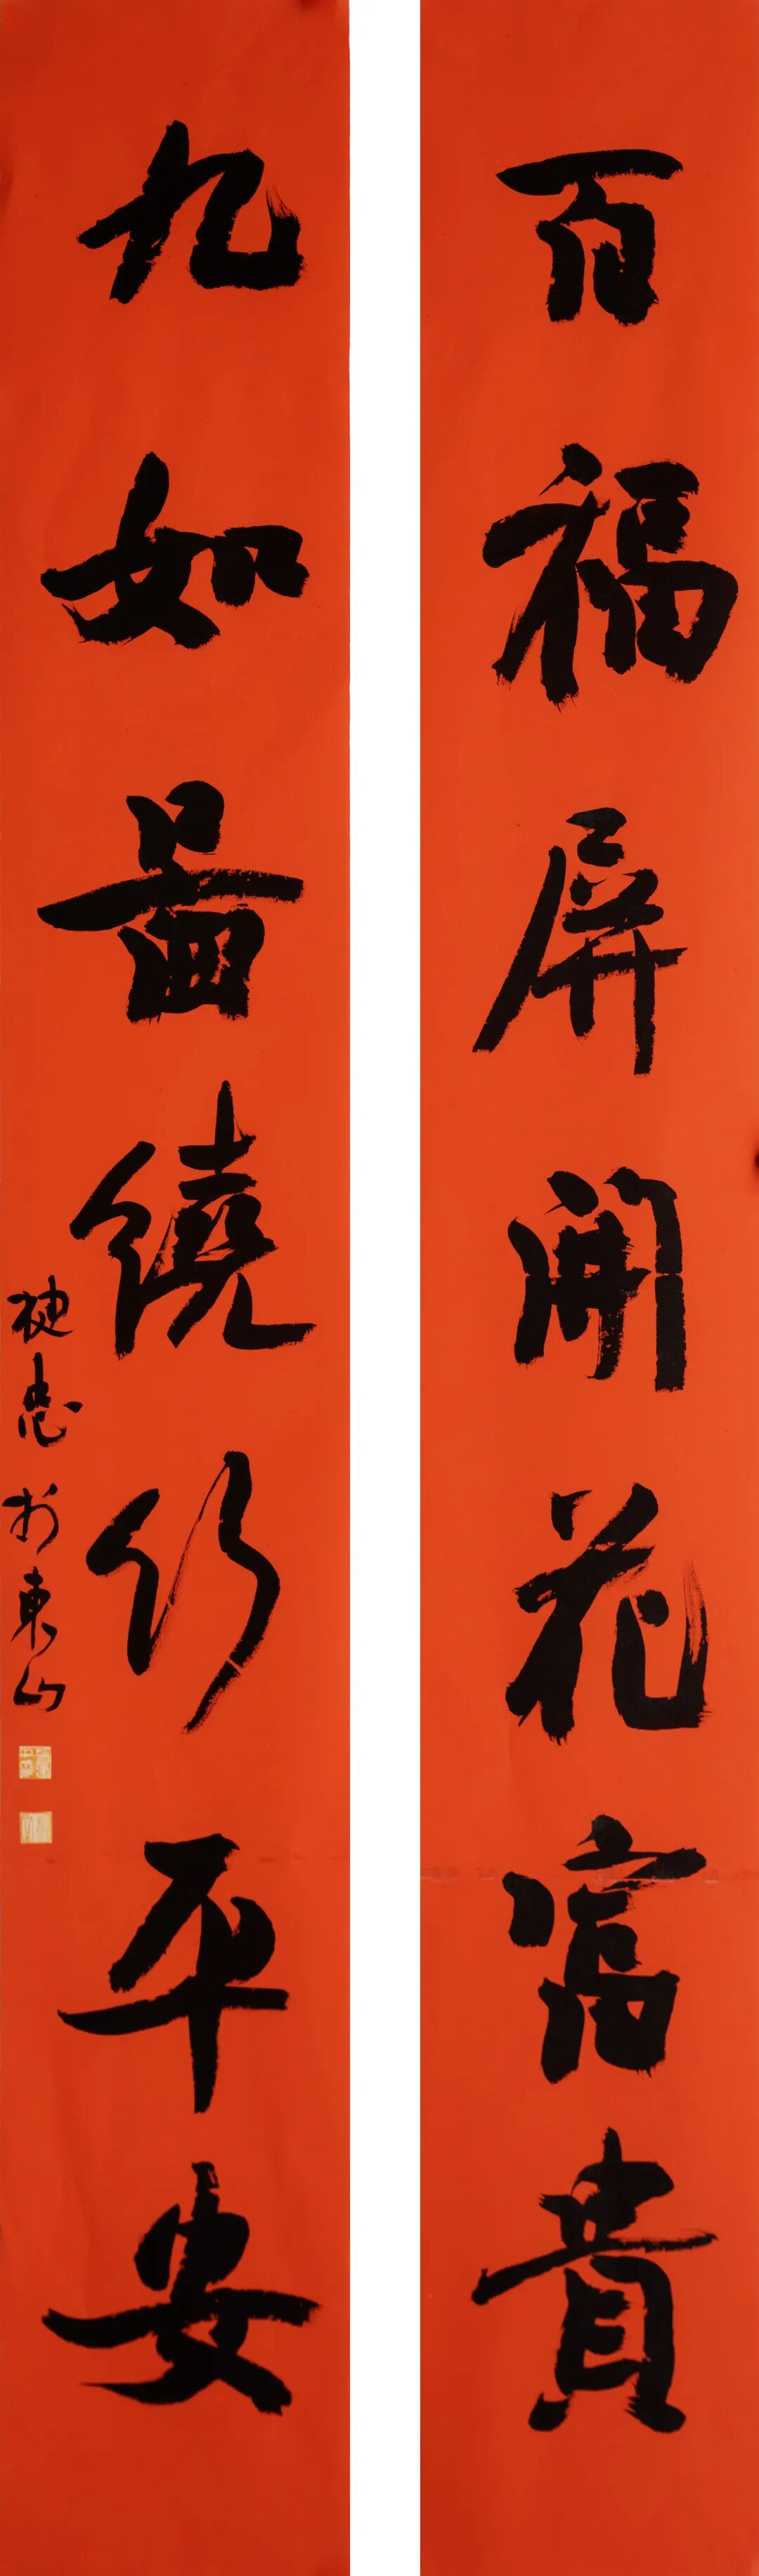 百福屏開花富貴
九如啚繞竹平安
忠於東山